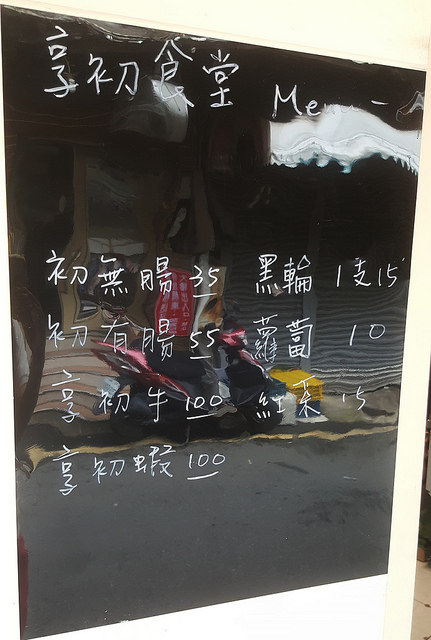 享初食堂 Menu - A
初無腸 35 黑輪 1支15
初有腸 55 蘿蔔 10
享初牛 100 紅菜 15
享初蝦 100